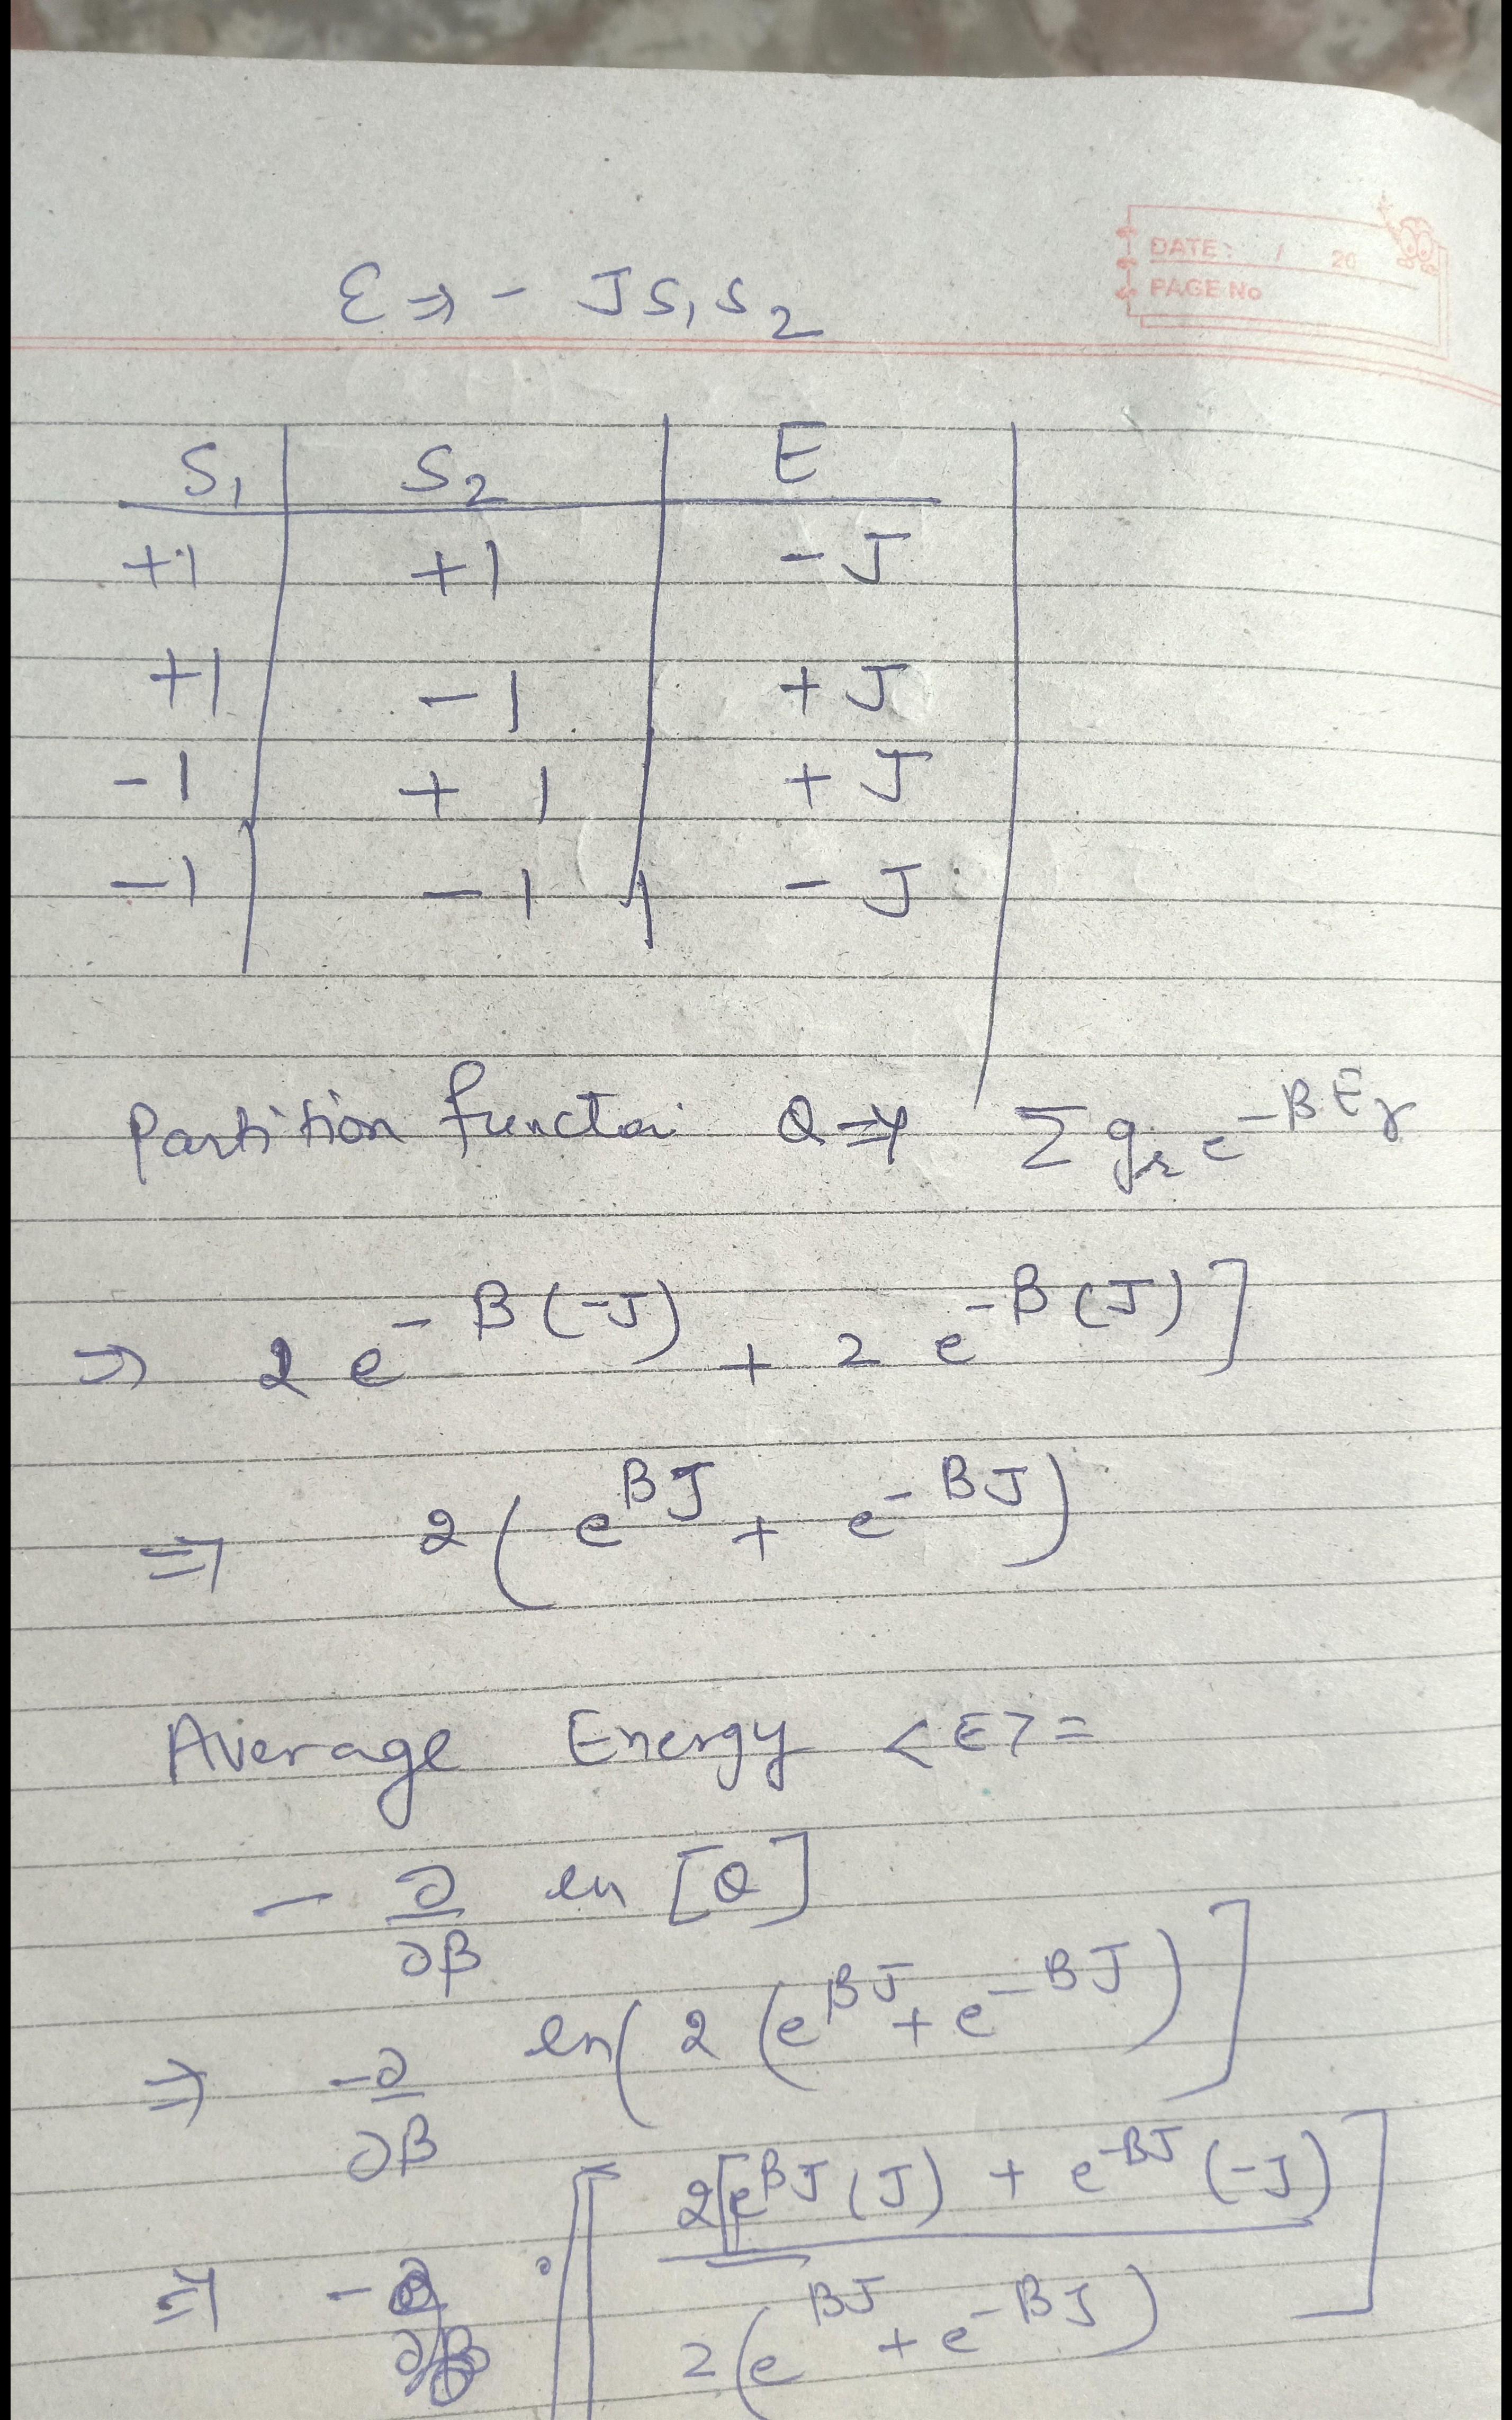 DATE: / 20
PAGE No
Ɛ ⇒ - J S₁ S₂
S₁ | S₂ | E
+1 | +1 | - J
+1 | - 1 | + J
- 1 | + 1 | + J
- 1 | - 1 | - J
Partition functoi Q ⇒ Σ gᵣ e^{-βEᵣ}
⇒ 2 e^{-β(-J)} + 2 e^{-β(J)} ]
⇒ 2 ( e^{βJ} + e^{-βJ} )
Average Energy <E> =
- ∂/∂β ln [Q]
⇒ -∂/∂β ln( 2 (e^{βJ} + e^{-βJ}) ]
⇒ - [ 2[e^{βJ}(J) + e^{-βJ}(-J) / 2(e^{βJ} + e^{-βJ}) ]